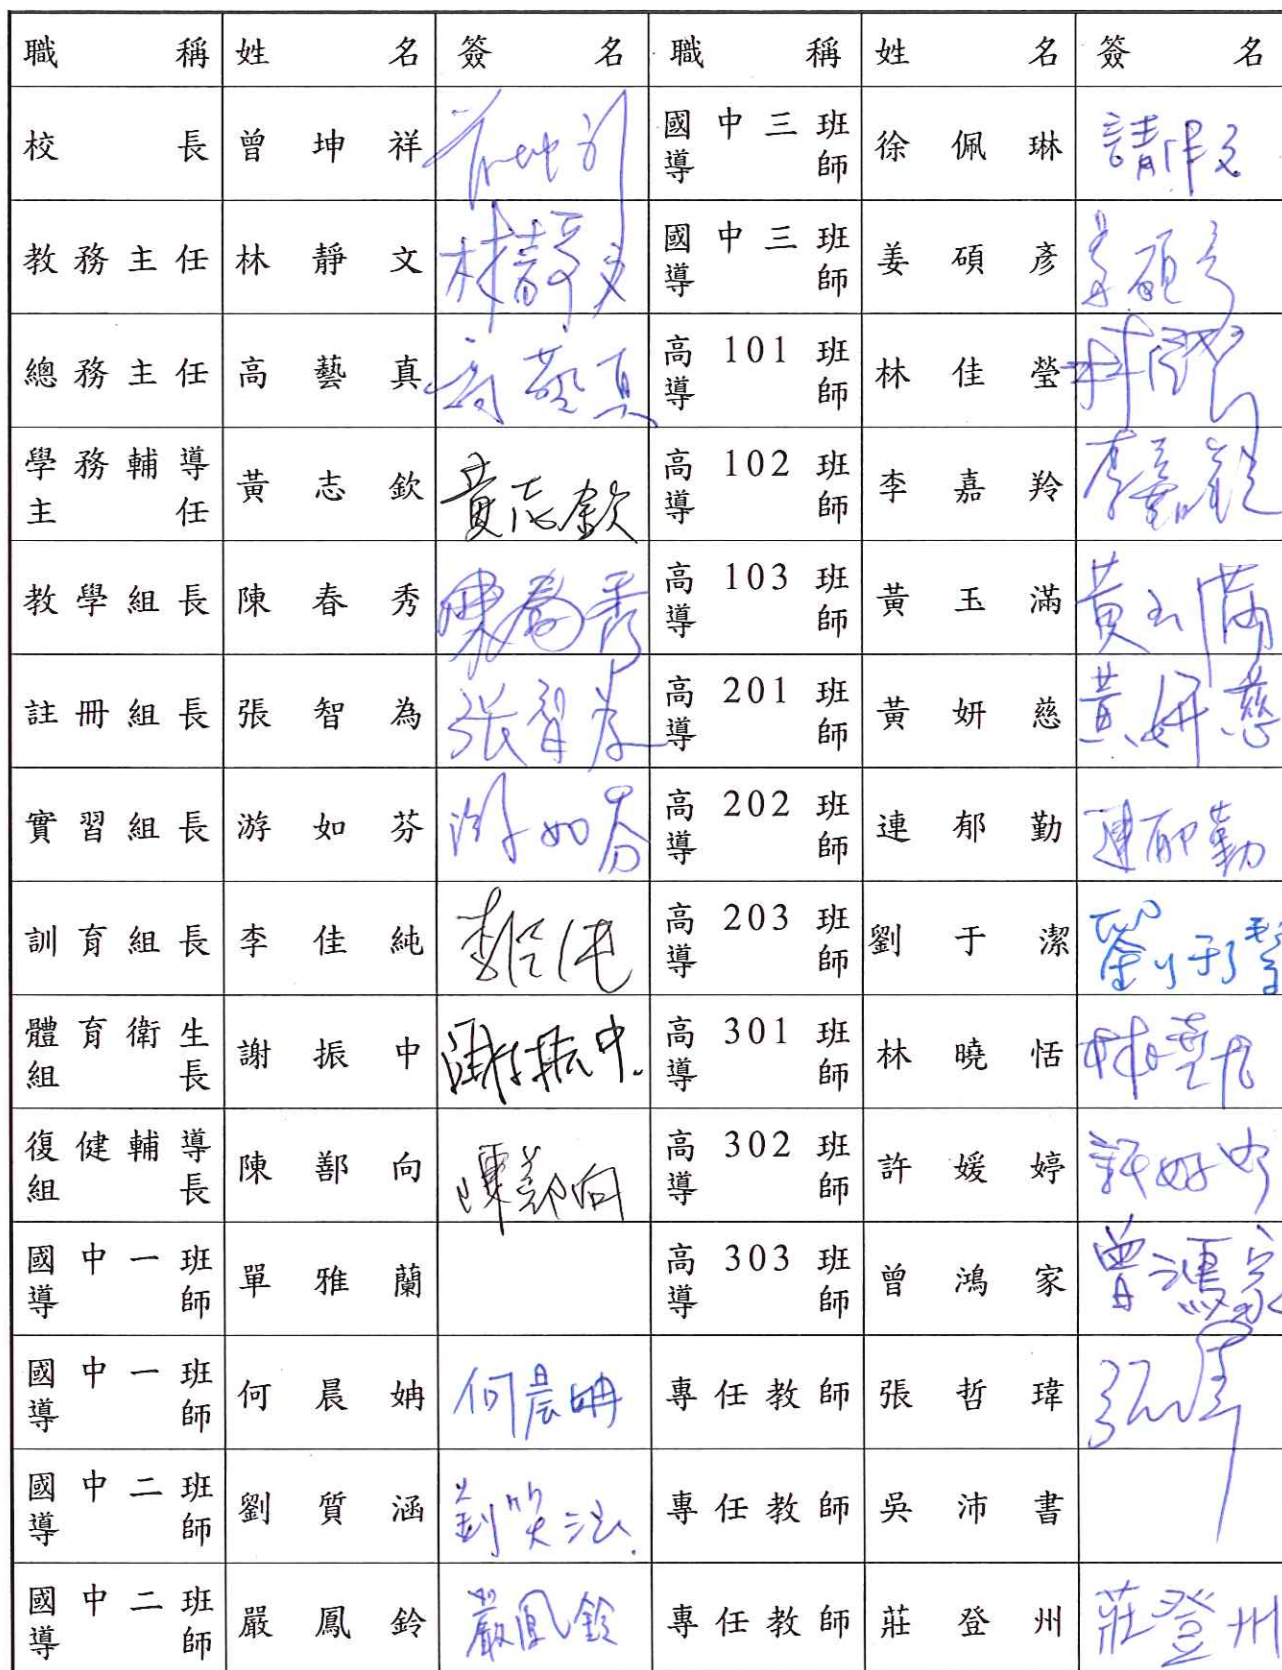 職稱 姓名 簽名 職稱 姓名 簽名
校長 曾坤祥 國中三班導師 徐佩琳
教務主任 林靜文 林靜文 國中三班導師 姜碩彥 姜碩彥
總務主任 高藝真 高藝真 高101班導師 林佳瑩
學務輔導主任 黃志欽 黃志欽 高102班導師 李嘉羚 李嘉羚
教學組長 陳春秀 陳春秀 高103班導師 黃玉滿 黃玉滿
註冊組長 張智為 張智為 高201班導師 黃妍慈 黃妍慈
實習組長 游如芬 游如芬 高202班導師 連郁勤 連郁勤
訓育組長 李佳純 李佳純 高203班導師 劉于潔 劉于潔
體育衛生組長 謝振中 謝振中. 高301班導師 林曉恬 林曉恬
復健輔導組長 陳鄯向 陳鄯向 高302班導師 許媛婷
國中一班導師 單雅蘭 高303班導師 曾鴻家 曾鴻家
國中一班導師 何晨姌 何晨姌 專任教師 張哲瑋
國中二班導師 劉質涵 專任教師 吳沛書
國中二班導師 嚴鳳鈴 嚴鳳鈴 專任教師 莊登州 莊登州